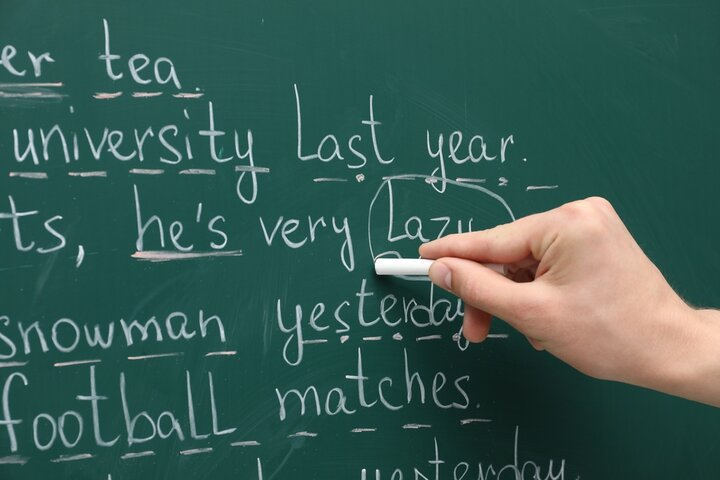 er tea.
university last year.
ts, he's very lazy
snowman yesterday.
football matches.
yesterday.